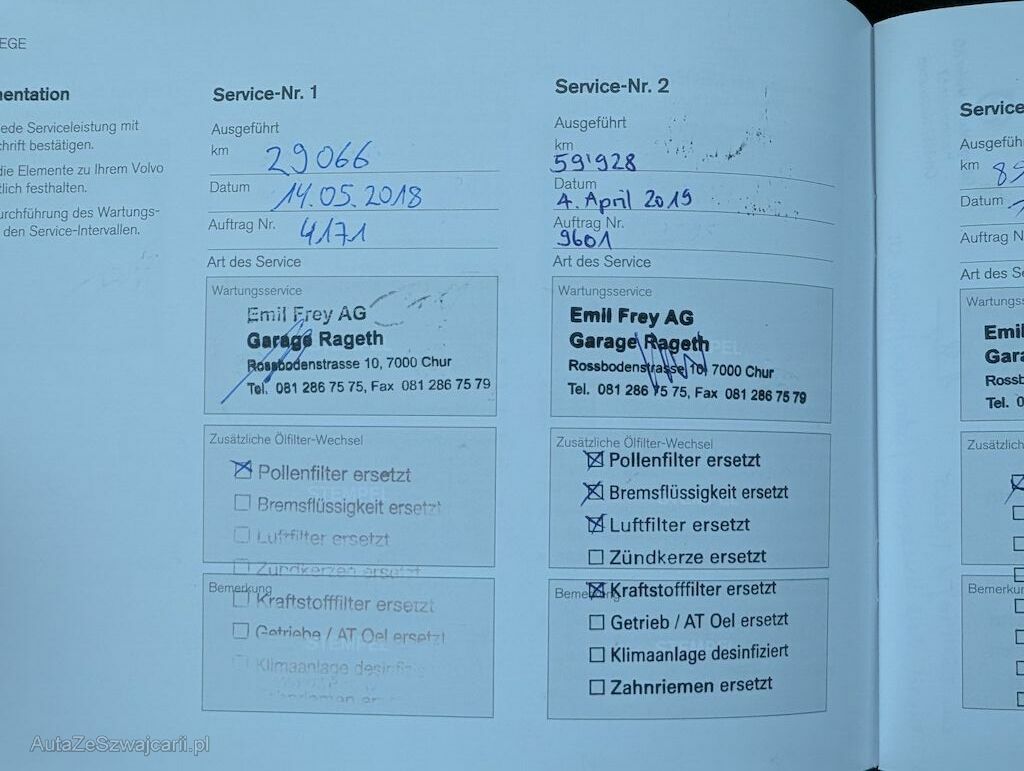 EGE
mentation
ede Serviceleistung mit
chrift bestätigen.
die Elemente zu Ihrem Volvo
tlich festhalten.
urchführung des Wartungs-
den Service-Intervallen.
Service-Nr. 1
Ausgeführt
km 29066
Datum 14.05.2018
Auftrag Nr. 4171
Art des Service
Wartungsservice
Emil Frey AG
Garage Rageth
Rossbodenstrasse 10, 7000 Chur
Tel. 081 286 75 75, Fax 081 286 75 79
Zusätzliche Ölfilter-Wechsel
Pollenfilter ersetzt
Bremsflüssigkeit ersetzt
Luftfilter ersetzt
Zündkerzen ersetzt
Bemerkung
Kraftstofffilter ersetzt
Getriebe / AT Oel ersetzt
Klimaanlage desinfiz
Service-Nr. 2
Ausgeführt
km
59'928
Datum
4. April 2019
Auftrag Nr.
9601
Art des Service
Wartungsservice
Emil Frey AG
Garage Rageth
Rossbodenstrasse 10, 7000 Chur
Tel. 081 286 75 75, Fax 081 286 75 79
Zusätzliche Ölfilter-Wechsel
Pollenfilter ersetzt
Bremsflüssigkeit ersetzt
Luftfilter ersetzt
Zündkerze ersetzt
Bemerkung
Kraftstofffilter ersetzt
Getrieb / AT Oel ersetzt
Klimaanlage desinfiziert
Zahnriemen ersetzt
Service
Ausgeführ
km 89
Datum
Auftrag N
Art des Se
Wartungss
Emil
Gara
Rossb
Tel. 0
Zusätzlich
Bemerkun
AutaZeSzwajcarii.pl